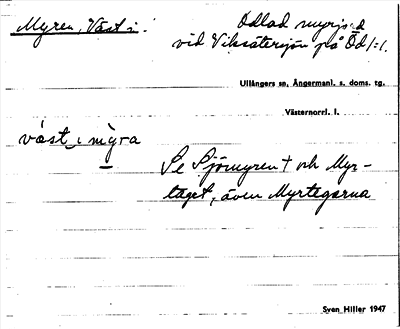 Myren, Väst i.
Odlad myrjord
vid Viksätersjön på Öd /:1.
Ullångers sn, Ångermanl. s. doms. tg.
Västernorrl. l.
väst i mỳra
Se Sjömyren + och Myr-
taget, även Myrtegarna
Sven Hiller 1947